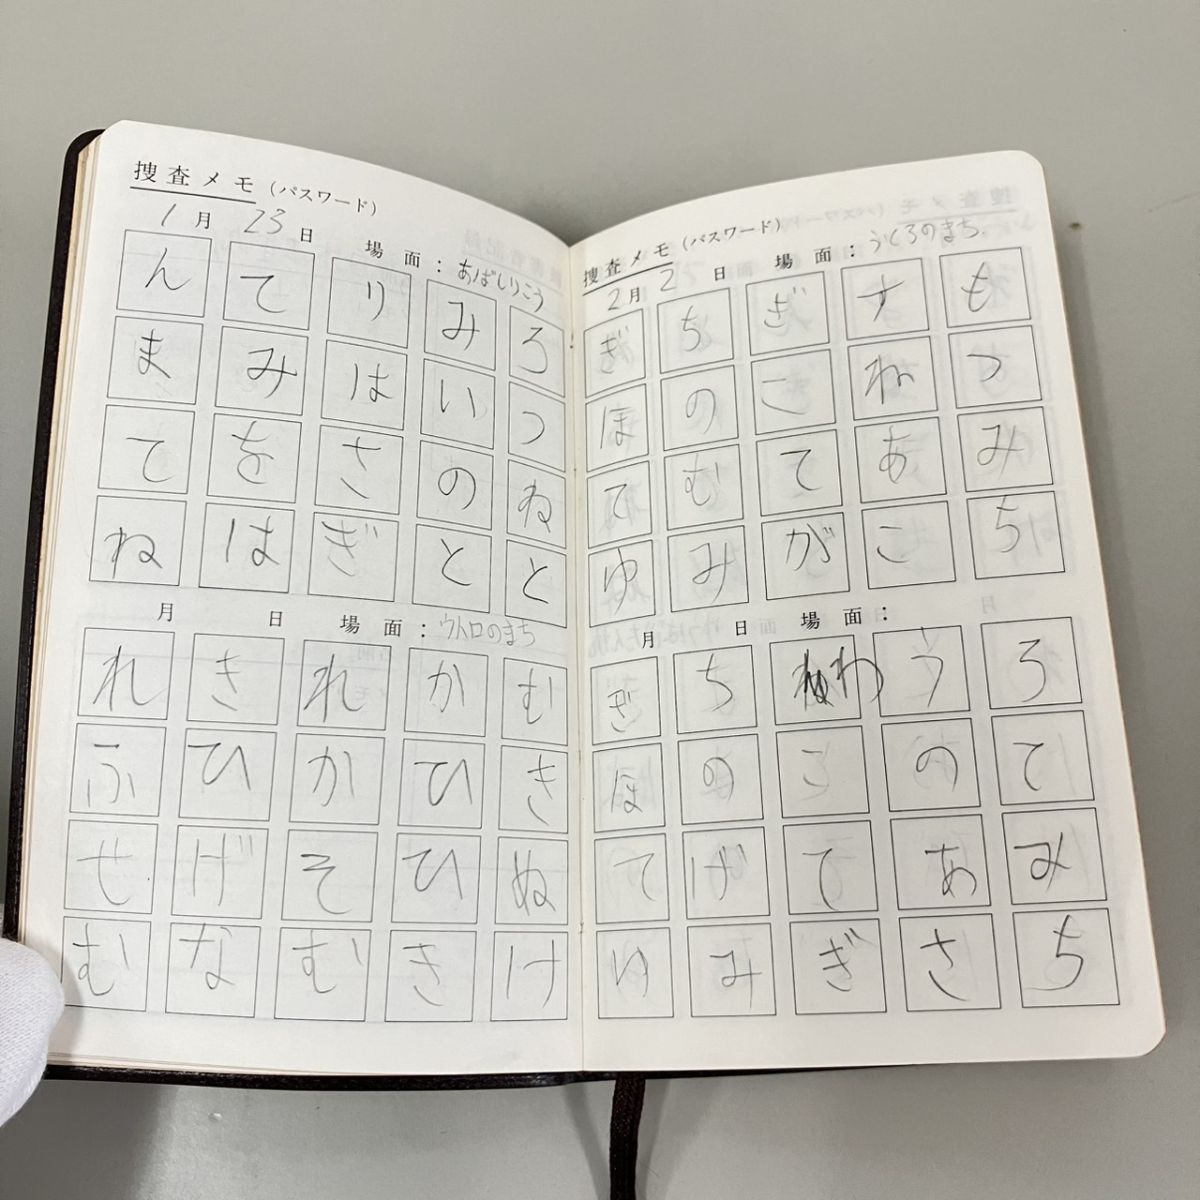 捜査メモ（パスワード）
1月 23日 場面：あばしりこう
ん て り み ろ
ま み は い つ
て を さ の ね
ね は ぎ と と
月 日 場面：ウトロのまち
れ き れ か む
ふ ひ か ひ き
せ げ そ ひ ぬ
む な む き け
捜査メモ（パスワード）
2月 2日 場面：うとろのまち
ぎ ち ぎ す も
ほ の こ ね つ
て む て あ み
ゆ み が こ ち
月 日 場面：
ぎ ち わ う ろ
ほ の こ の て
て げ て あ み
ゆ み ぎ さ ち